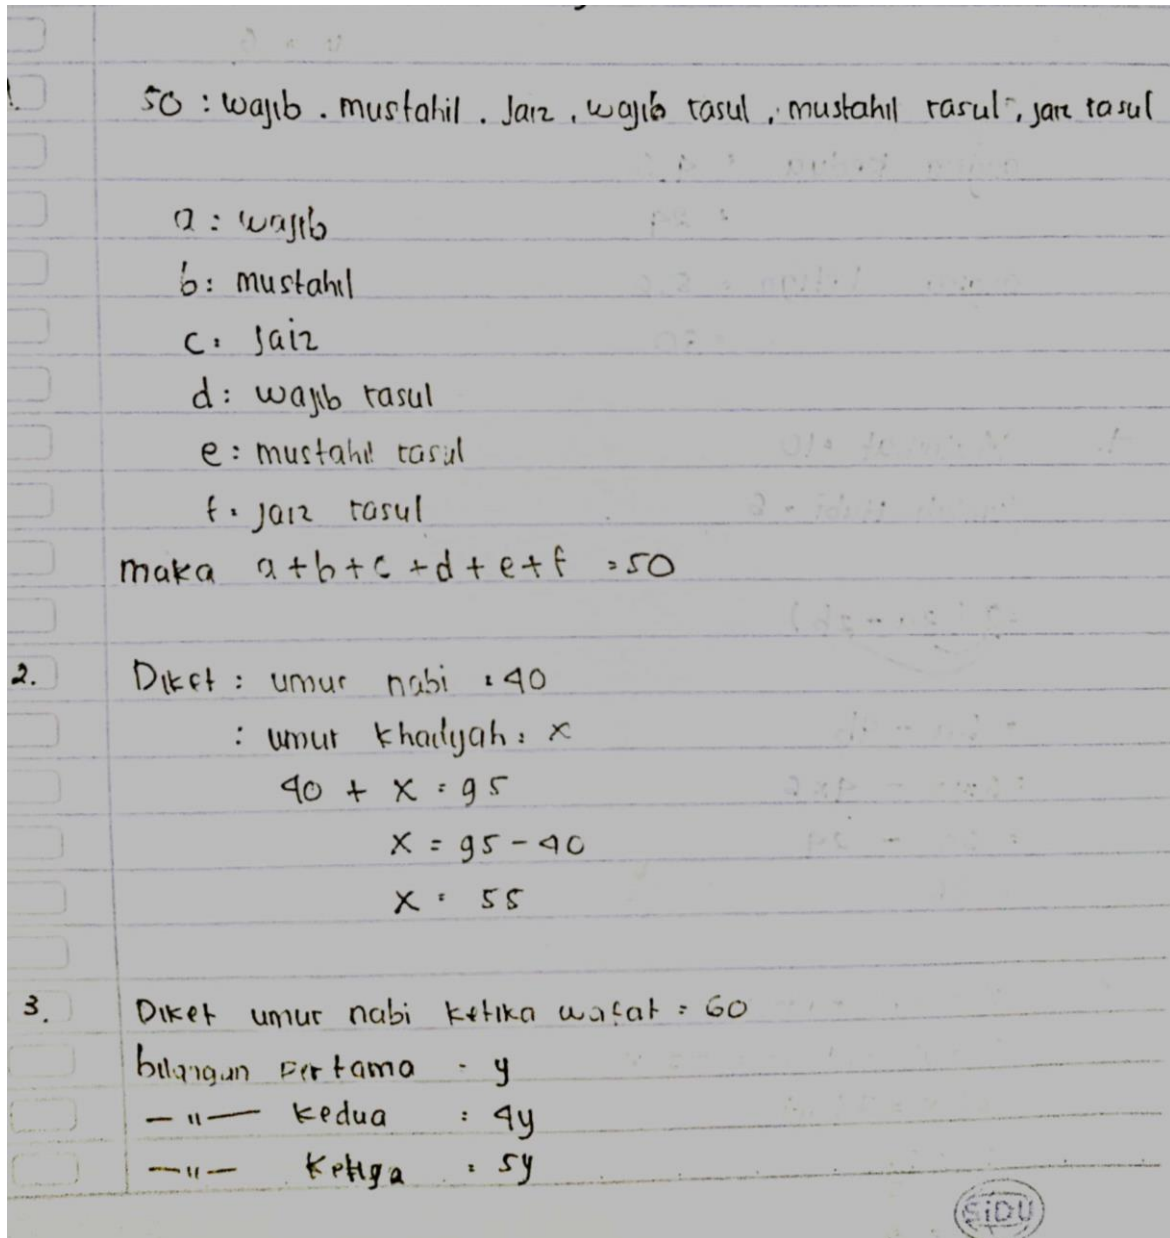 1. 50 : wajib . mustahil . Jaiz , wajib rasul , mustahil rasul , jaiz rasul
a : wajib
b : mustahil
c : Jaiz
d : wajib rasul
e : mustahil rasul
f : jaiz rasul
maka a + b + c + d + e + f = 50
2. Diket : umur nabi : 40
: umur khadijah : x
40 + x = 95
x = 95 - 40
x = 55
3. Diket umur nabi ketika wafat = 60
bilangan pertama = y
— " — kedua : 4y
— " — Ketiga : 5y
SiDU